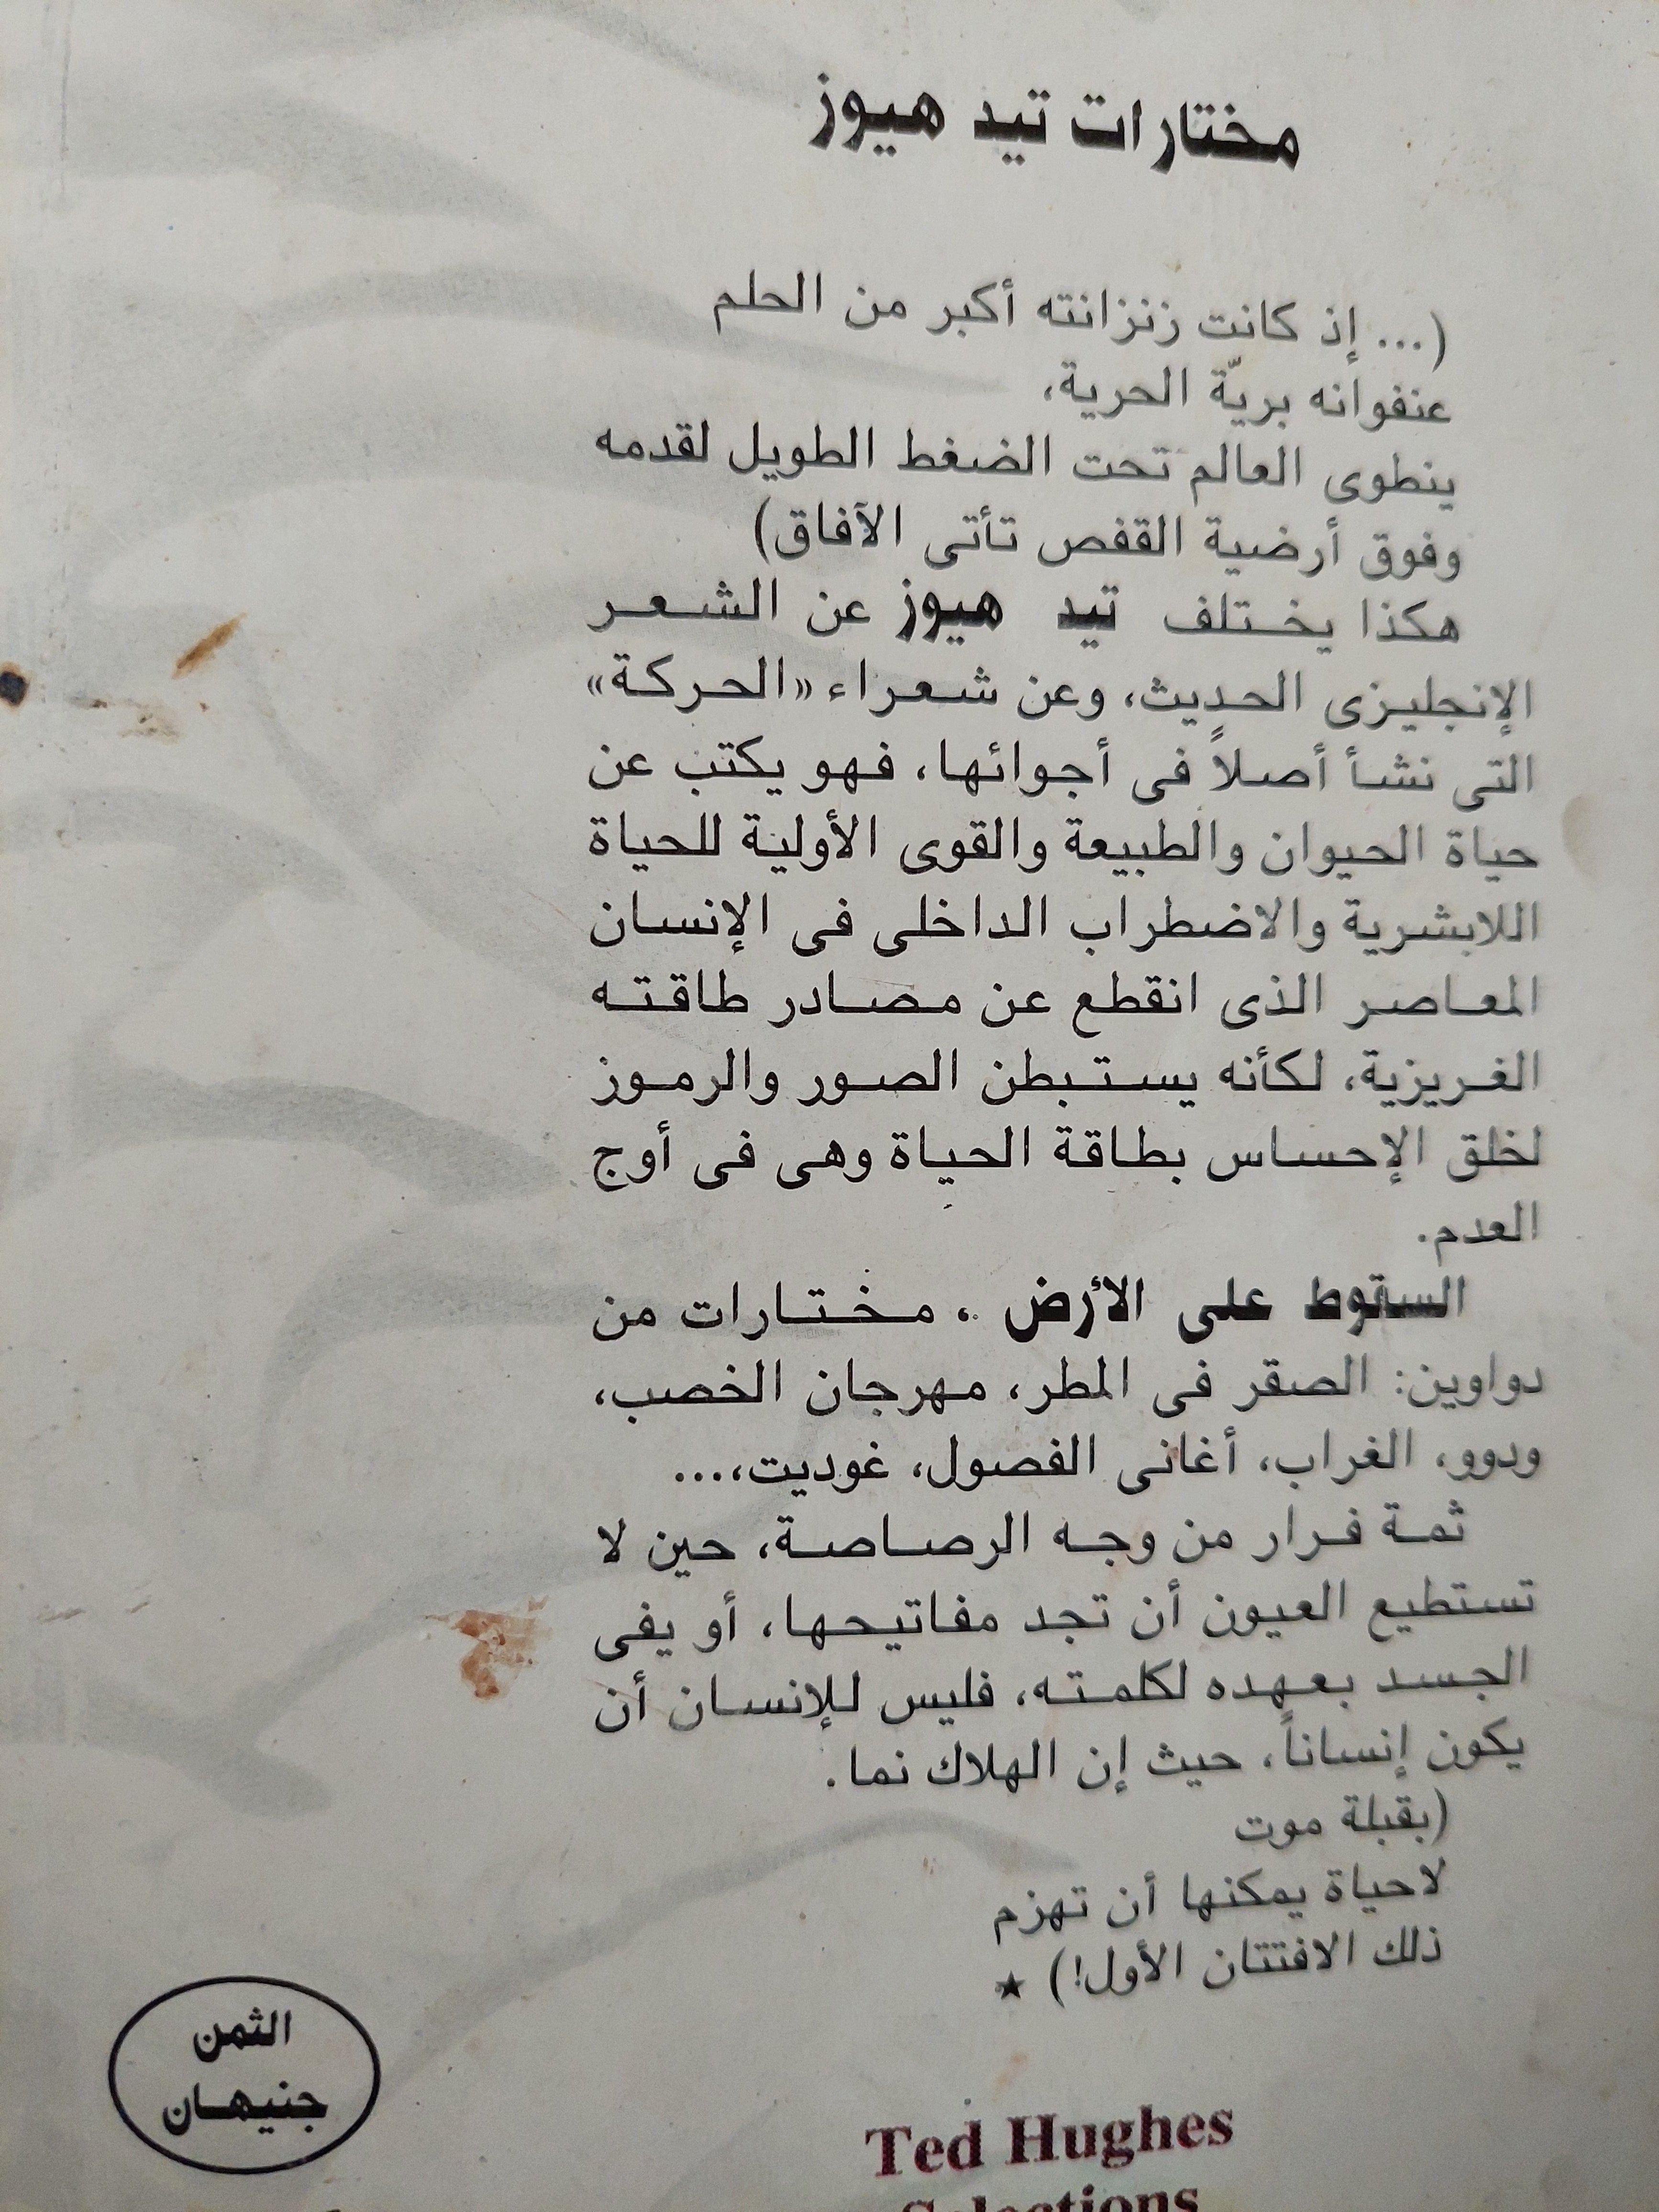 مختارات تيد هيوز
(... إذ كانت زنزانته أكبر من الحلم
عنفوانه بريّة الحرية،
ينطوى العالم تحت الضغط الطويل لقدمه
وفوق أرضية القفص تأتى الآفاق)
هكذا يختلف تيد هيوز عن الشعر
الإنجليزى الحديث، وعن شعراء «الحركة»
التى نشأ أصلاً فى أجوائها، فهو يكتب عن
حياة الحيوان والطبيعة والقوى الأولية للحياة
اللابشرية والاضطراب الداخلى فى الإنسان
المعاصر الذى انقطع عن مصادر طاقته
الغريزية، لكأنه يستبطن الصور والرموز
لخلق الإحساس بطاقة الحياة وهى فى أوج
العدم.
السقوط على الأرض ، مختارات من
دواوين: الصقر فى المطر، مهرجان الخصب،
ودوو، الغراب، أغانى الفصول، غوديت،...
ثمة فرار من وجه الرصاصة، حين لا
تستطيع العيون أن تجد مفاتيحها، أو يفى
الجسد بعهده لكلمته، فليس للإنسان أن
يكون إنساناً، حيث إن الهلاك نما.
(بقبلة موت
لاحياة يمكنها أن تهزم
ذلك الافتتان الأول!) ★
الثمن
جنيهان
Ted Hughes
Selections